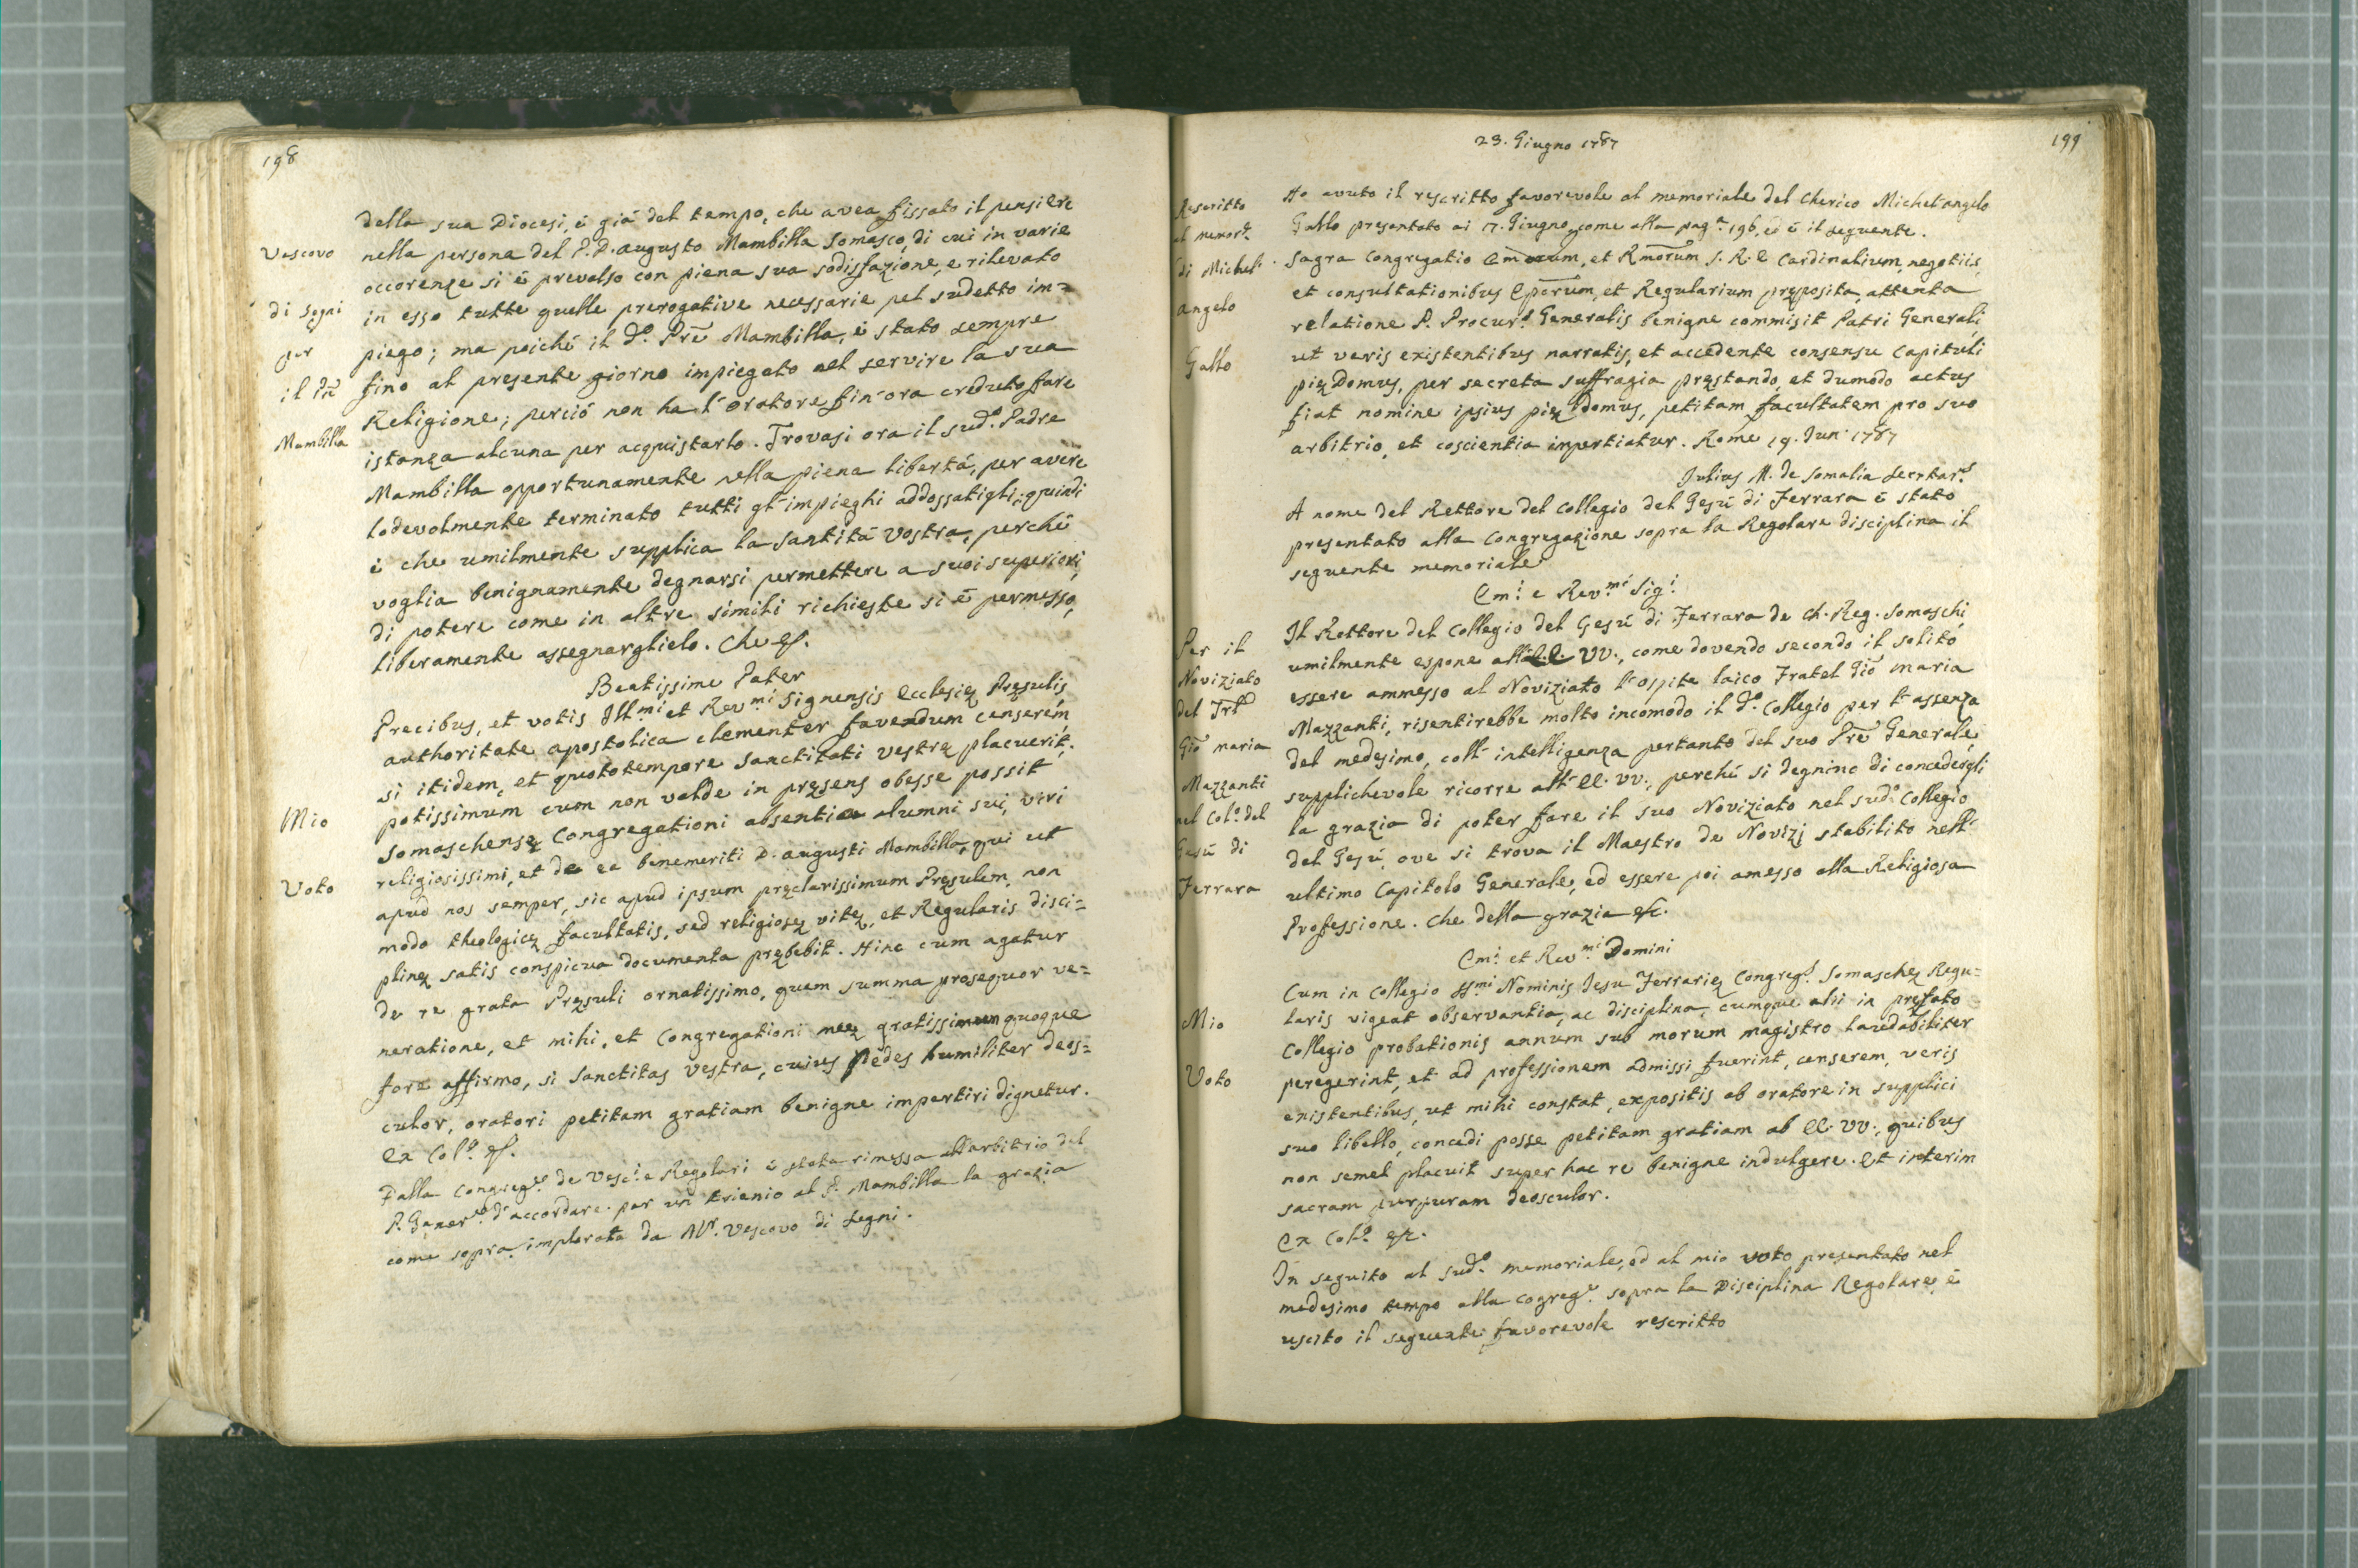 198
della sua Diocesi, è già del tempo, che avea fissato il pensiere
Vescovo
nella persona del P. D. Augusto Mambilla Somasco, di cui in varie
occorenze si è prevalso con piena sua sodisfazione, e rilevato
di Segni
in esso tutte quelle prerogative necessarie pel sudetto im=
per
piego; ma poichè il d.º Prē Mambilla, è stato sempre
il Prē
fino al presente giorno impiegato nel servire la sua
Religione; perciò non ha l'Oratore fin'ora creduto fare
Mambilla
istanza alcuna per acquistarlo. Trovasi ora il sud.º Padre
Mambilla opportunamente nella piena libertà, per avere
lodevolmente terminato tutti gl'impieghi addossatigli; quindi
è che umilmente supplica la Santità Vostra, perchè
voglia benignamente degnarsi permettere a suoi superiori,
di potere come in altre simili richieste si è permesso,
liberamente assegnarglielo. Che &.
Beatissime Pater
Precibus, et votis Ill.mi et Rev.mi Signensis Ecclesię Pręsulis
authoritate apostolica clementer favendum censerem
si itidem, et quototempore Sanctitati Vestrę placuerit,
potissimum cum non valde in pręsens obesse possit
Mio
Somaschensę Congregationi absentia alumni sui, viri
religiosissimi, et de ea benemeriti D. Augusti Mambilla, qui ut
Voto
apud nos semper, sic apud ipsum pręclarissimum Pręsulem, non
modo theologicę facultatis, sed religiosę vitę, et Regularis disci=
plinę satis conspicua documenta prębebit. Hinc cum agatur
de re grata Pręsuli ornatissimo, quem summa prosequor ve=
neratione, et mihi, et Congregationi meę gratissimum quoque
fore affirmo, si Sanctitas Vestra, cuius pedes humiliter deos=
culor, oratori petitam gratiam benigne impertiri dignetur.
Ex Col.º &.
Dalla Congreg.e de Vesc.i e Regolari è stata rimessa all'arbitrio del
P. Gener.le d'accordare per un trienio al P. Mambilla la grazia
come sopra implorata da M.r Vescovo di Segni.
23. Giugno 1787
199
Rescritto
al memor.e
di Michel'
angelo
Gallo
Ho avuto il rescritto favorevole al memoriale del Cherico Michel'angelo
Gallo presentato ai 17. Giugno, come alla pag.a 196, ed è il seguente.
Sagra Congregatio Emorum, et Rmorum S. R. E Cardinalium, negotiis,
et consultationibus Eporum, et Regularium pręposita, attenta
relatione P. Procur.s Generalis benigne commisit Patri Generali,
ut veris existentibus narratis, et accedente consensu Capituli
pię Domus, per secreta suffragia pręstando, et dumodo actus
fiat nomine ipsius pię Domus, petitam facultatem pro suo
arbitrio, et coscientia impertiatur. Romę 19. Jun. 1787
Julius M. de Somalia Secrtar.s
A nome del Rettore del Collegio del Gesù di Ferrara è stato
presentato alla Congregazione sopra la Regolare disciplina il
seguente memoriale
Em.i e Rev.mi Sig.i
Per il
Noviziato
del Frtl
Giō Maria
Mazzanti
nel Col.º del
Gesù di
Ferrara
Il Rettore del Collegio del Gesù di Ferrara de Ch. Reg. Somaschi,
umilmente espone all'E.E. VV., come dovendo secondo il solito
essere ammesso al Noviziato l'ospite laico Fratel Giō Maria
Mazzanti, risentirebbe molto incomodo il d.º Collegio per l'assenza
del medesimo, coll'intelligenza pertanto del suo Prē Generale,
supplichevole ricorre all'EE. VV., perchè si degnino di concedergli
la grazia di poter fare il suo Noviziato nel sud.º Collegio
del Gesù, ove si trova il Maestro de Novizj stabilito nell'
ultimo Capitolo Generale, ed essere poi amesso alla Religiosa
Professione. Che della grazia &c.
Em.i et Rev.mi Domini
Cum in Collegio SS.mi Nominis Jesu Ferrarię Congreg.s Somaschę Regu=
Mio
laris vigeat observantia, ac disciplina, cumque alii in prefato
Collegio probationis annum sub morum magistro laudabiliter
Voto
peregerint, et ad professionem admissi fuerint, censerem, veris
existentibus, ut mihi constat, expositis ab oratore in supplici
suo libello, concedi posse petitam gratiam ab EE. VV., quibus
non semel placuit super hac re benigne indulgere. Et interim
sacram purpuram deosculor.
Ex Col.º &c.
In seguito al sud.º memoriale, ed al mio voto presentato nel
medesimo tempo alla Cogreg.e sopra la Disciplina Regolare, è
uscito il seguente favorevole rescritto